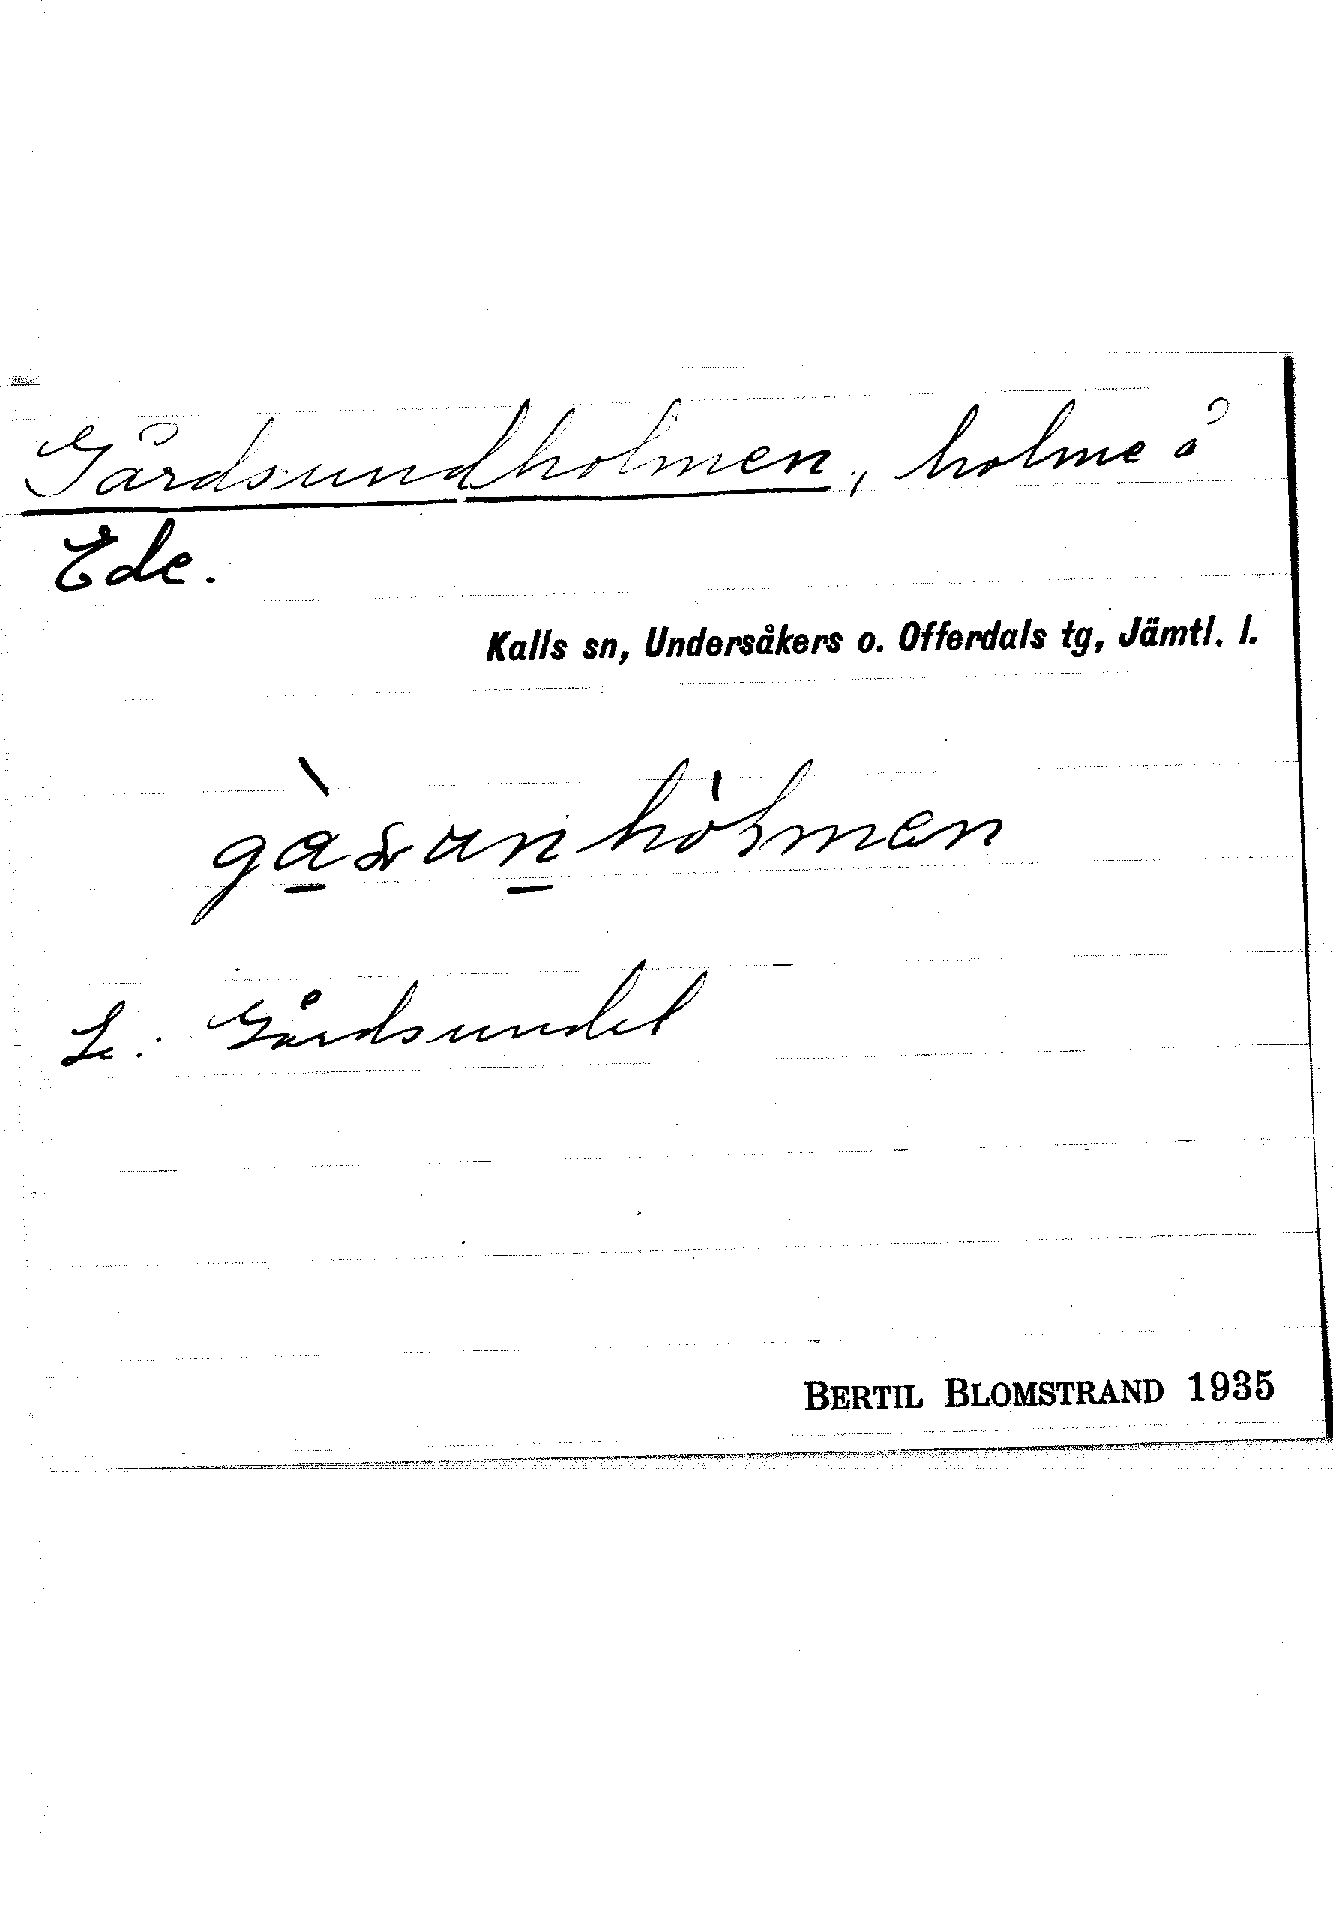 Gårdsundholmen, holme å
Ede.
Kalls sn, Undersåkers o. Offerdals tg, Jämtl. l.
Se: Gårdsundet
BERTIL BLOMSTRAND 1935